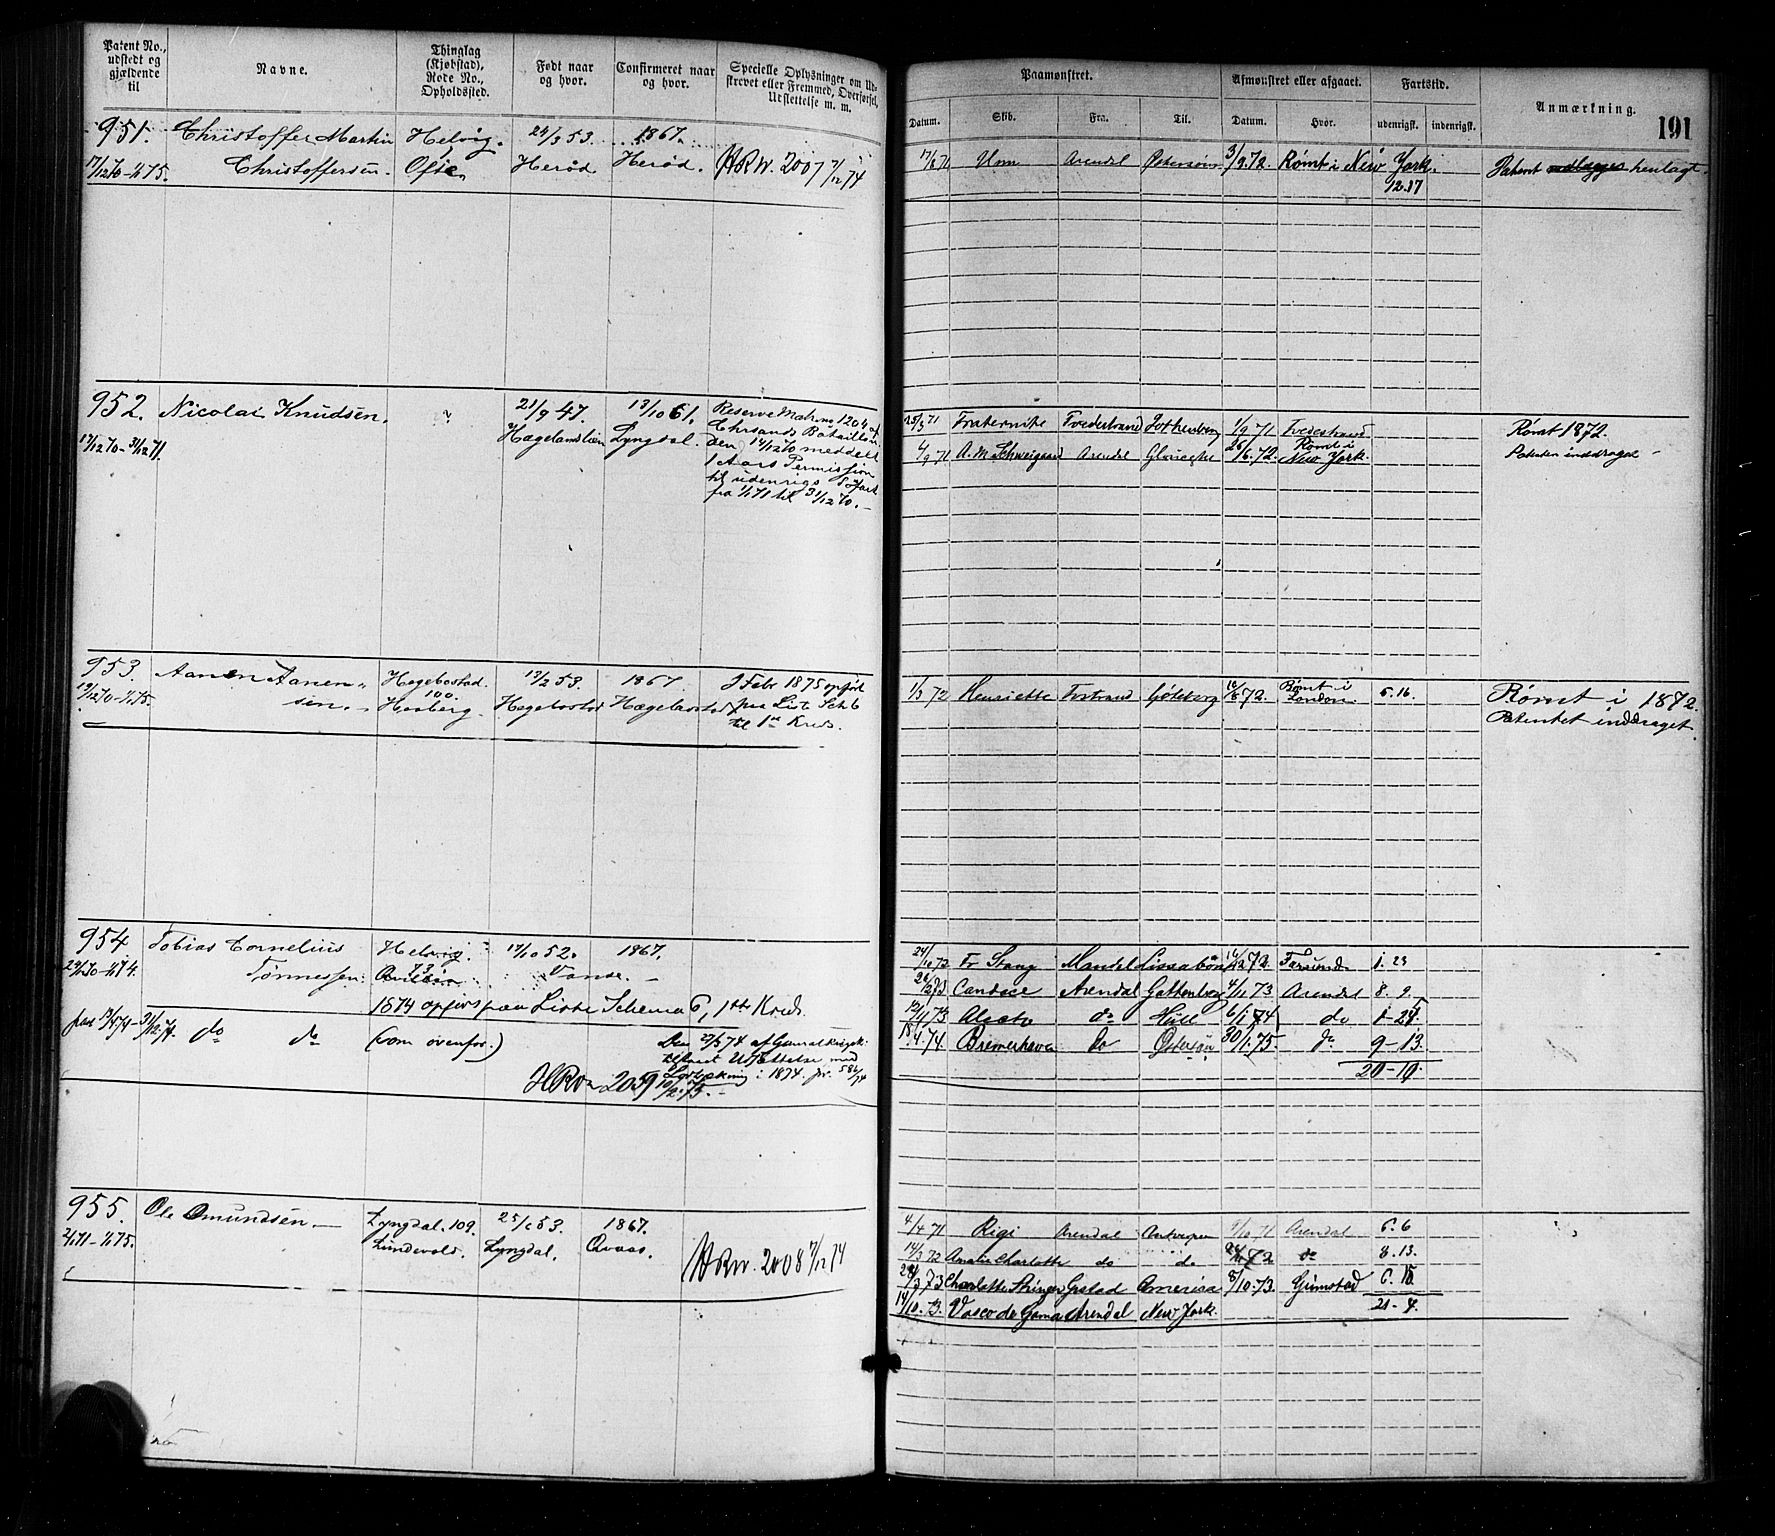 Patent No., udstedt og gjældende til
Navne.
Thinglag (Kjøbstad), Rode No., Opholdssted.
Født naar og hvor.
Confirmeret naar og hvor.
Specielle Oplysninger om Udskrevet eller Fremmed, Overførsel, Udslettelse m. m.
Paamønstret.
Datum.
Skib.
Fra.
Til.
Afmønstret eller afgaaet.
Datum.
Hvor.
Fartstid.
udenrigsk.
indenrigsk.
Anmærkning.
191
951. Christoffer Martin Helvig. 24/3 53. 1867.
17/12 70 - 1/1 75. Christoffersen. Ofte. Herød Herød. HRW. 2007 7/12 74
17/6 71 Arendal 3/9.72. Rømt i New York. Patent henlagt.
12.17
952. Nicolai Knudsen. 21/9 47. 13/10 61. Reserve Mat. no 1204 af
17/12 70 - 31/12 71. Hægelandslien Lyngdal. Chrsands Bataillon
Den 14/12 70 meddelt
1 Aars Permission
til udenrigs Søfart
fra 1/1 71 til 31/12 70.
25/3 71 Fraternite Tvedestrand Gothenborg 1/9 71 Tvedestrand Rømt 1872.
4/9 71 A. M. Schweigaard Arendal Gloucester 26/6.72. Rømt i New York. Patenten inddraget
953. Aanen Aanensen. Hegebostad. 100. Hesberg. 17/2 53. Hegebostad 1867. Hægebostad 3 Febr 1875 opført
19/12 70 - 1/1 75. paa Liste Sch. 6
til 1ste Kreds.
1/3 72 Henriette Gøteborg 10/8 72. Rømt i London. 5.16. Rømt i 1872.
Patentet inddraget.
954 Tobias Cornelius Helvig. 17/10 52. 1867.
Tønnessen 73 Vanse.
1874 opføres paa Liste Schema 6, 1ste Kreds.
do do (som ovenfor.) Den 27/5 74 af
Udsættelse med
i 1874.
HRW 2039 10/2.75.
24/10 72 Fr Stang Mandel Lissabon 72. Farsund 1.23
Candace Arendal Gottenborg 4/11 73 Arendal 8. 9.
12/11 73 do Hull 6/1 74 do 1-27.
18/4.74. Bremerhaven do Østersøn 30/1.75. do 9-13.
20-10.
955. Ole Omundsen. Lyngdal. 109. 25/ 53. 1867.
2/1 71 - 1/1 75. Lundevold. Lyngdal. Qvaas. HRW. 2008 7/12 74
4/4 71 Rigi Arendal Antwerpen /10 71 Arendal 6.6
14/3 72 Amalie Charlotte do do 72 do 8.13.
73 Charlotte Ystad America 8/10.73. Grimstad 6. 15
14/10.73. Vasco de Gama Arendal New York. 21-4.